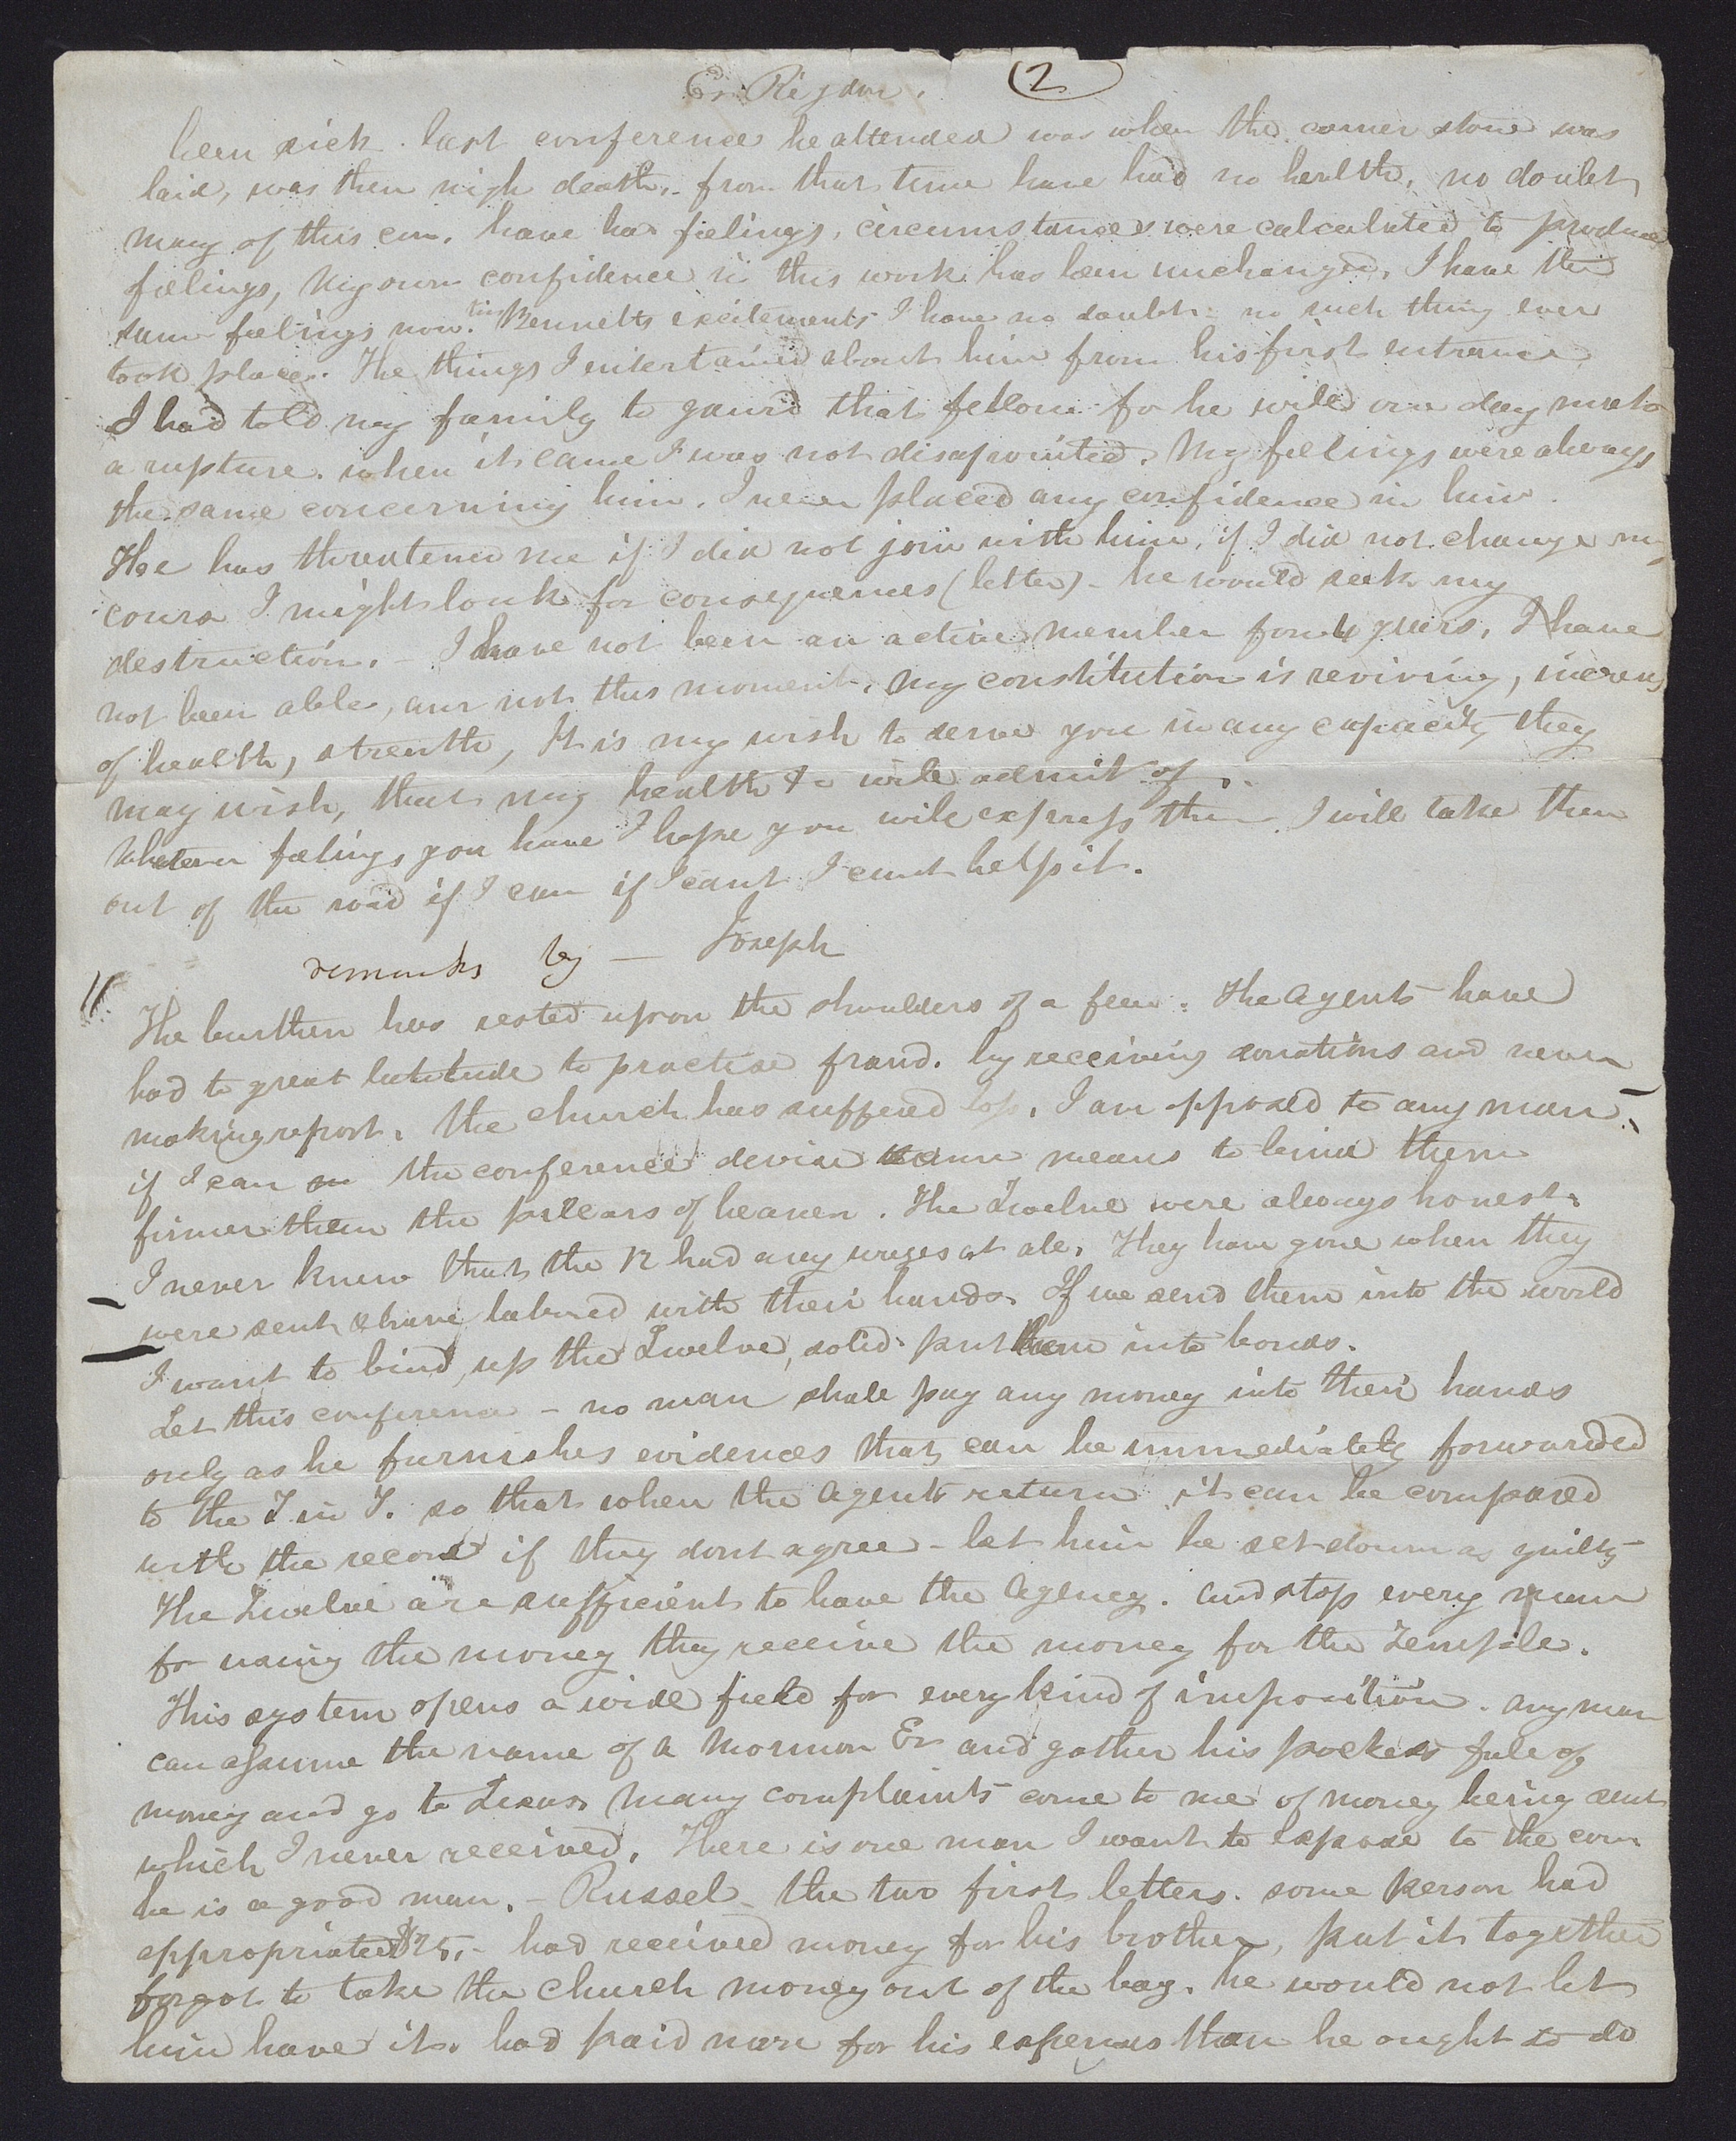 Er. Rigdon. 2
been sick. last conference he attended was when the corner stone was
laid, was then nigh death. from that time have had no health, no doubt
many of this con. have had feelings, circumstances were calculated to produce
feelings, My own confidence in this work has been unchanged, I have the
same feelings now. this Bennetts excitements I have no doubt - no such thing ever
took place. The things I entertained about him from his first entrance
I had told my family to gaurd that fellow for he will one day make
a rupture. when it came I was not disapointed. My feelings were always
the same concerning him. I never placed any confidence in him.
He has threatened me if I did not join with him, if I did not change my
course I might look for consequences (letter) - he would seek my
destruction. - I have not been an active member for 4 years, I have
not been able, am not this moment, my constitution is reviving, increas
of health, strenth, It is my wish to serve you in any capacity they
may wish, that my health &c will admit of.
Whatever feelings you have I hope you will express them I will take them
out of the road if I can if I cant I cant help it.
remarks by — Joseph
The burthen has rested upon the shoulders of a few. The agents have
had to great latitude to practise fraud. by receiving donations and never
making report. The church has suffered loss. I am opposed to any man
if I can or the conference devise some means to bind them
firmer them the pillars of heaven. The Twelve were always honest.
I never knew that the 12 had any wages at all. They have gone when they
were sent & have labored with their hands. If we send them into the world
I want to bind up the Twelve, solid put them into bonds.
Let this conference - no man shall pay any money into their hands
only as he furnishes evidences that can be immediately forwarded
to the T in T. so that when the agents return it can be compared
with the record if they dont agree - let him be set down as guilty
The Twelve are sufficient to have the agency. and stop every man
for using the money they receive the money for the Temple.
This system opens a wide field for every kind of imposition. any man
can assume the name of a Mormon Er and gather his pockets full of
money and go to Texas. Many complaints come to me of money being sent
which I never received. There is one man I want to expose to the con
he is a good man. - Russel - the two first letters. some person had
appropriated $25. - had received money for his brother, put it together
forgot to take the church money out of the bag. he would not let
him have it. had paid more for his expenses than he ought to do